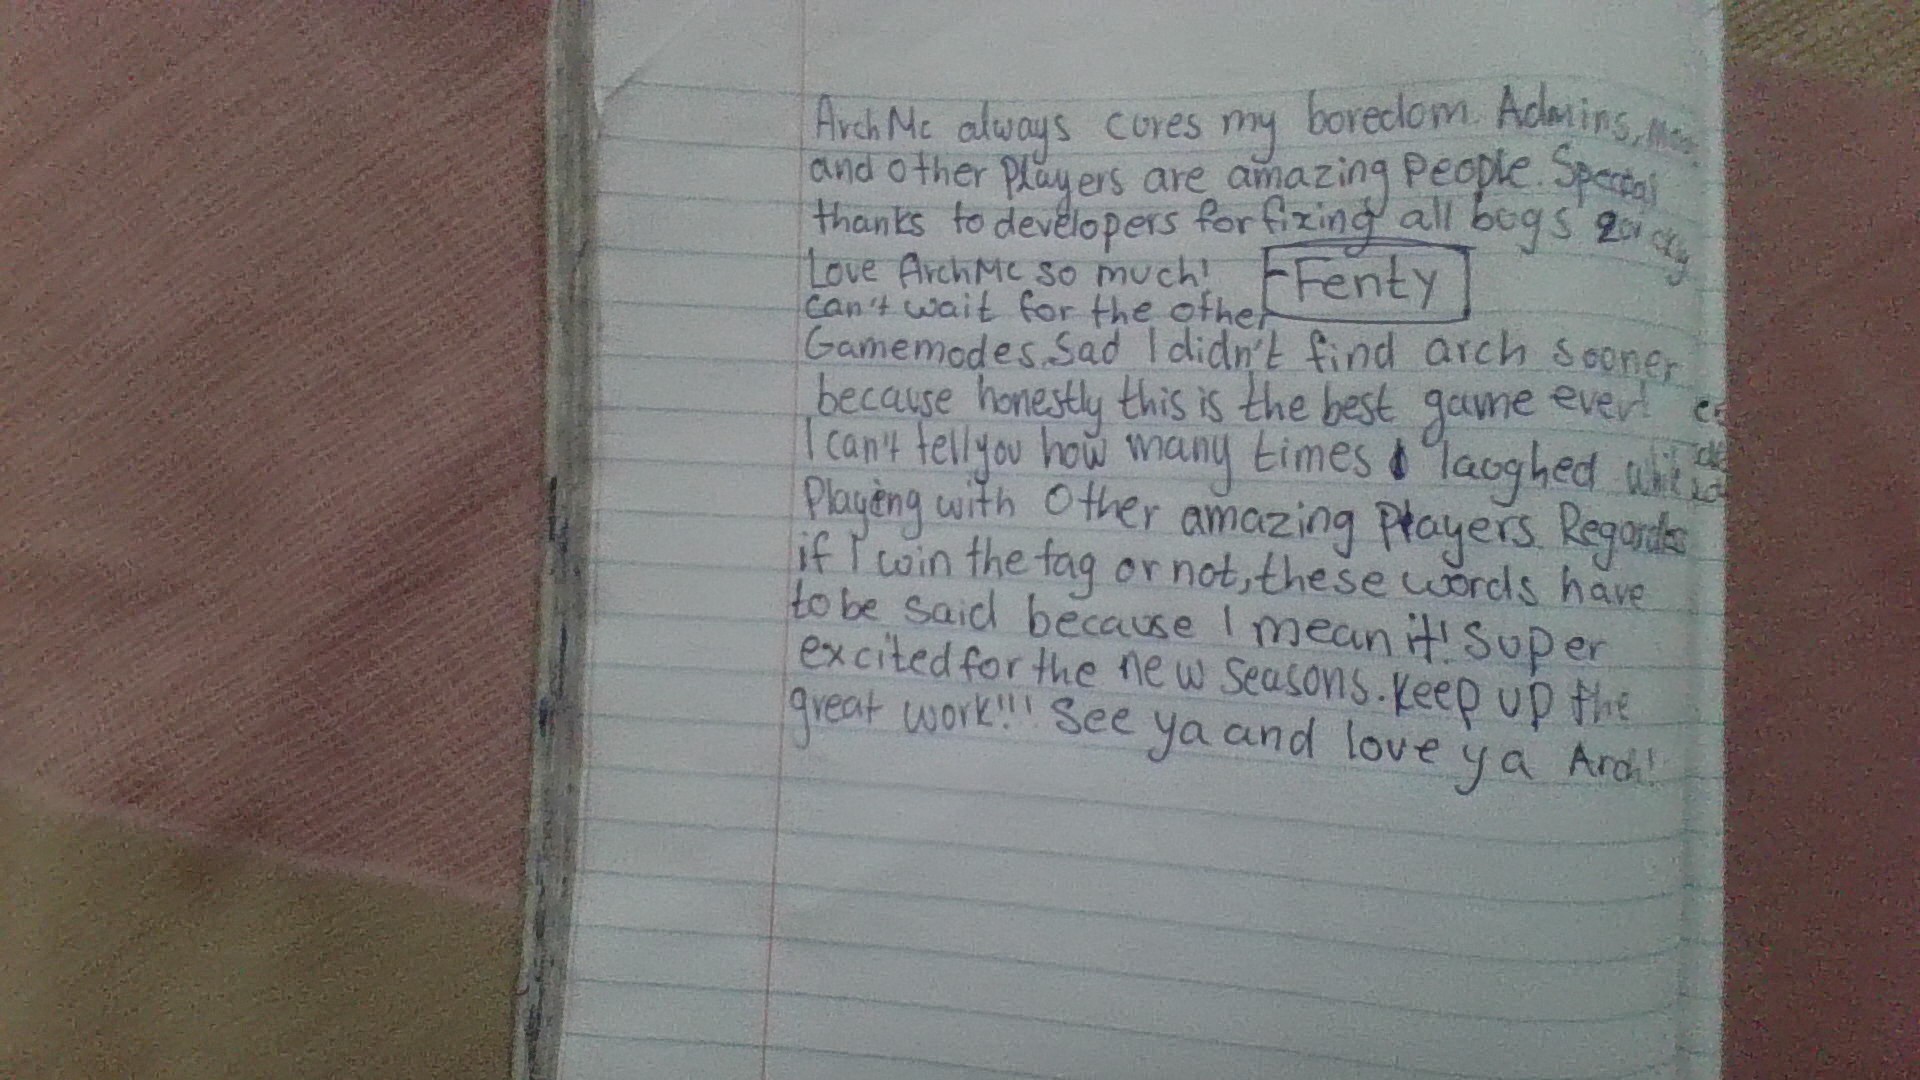 ArchMc always cures my boredom. Admins,
and other Players are amazing people. Special
thanks to developers for fixing all bugs quickly
Love ArchMc so much! -Fenty
can't wait for the other
Gamemodes. Sad I didn't find arch sooner
because honestly this is the best game ever!
I can't tell you how many times I laughed while
Playing with Other amazing Players. Regardes
if I win the tag or not, these words have
to be said because I mean it! Super
excited for the new seasons. Keep up the
great work!!! See ya and love ya Arch!